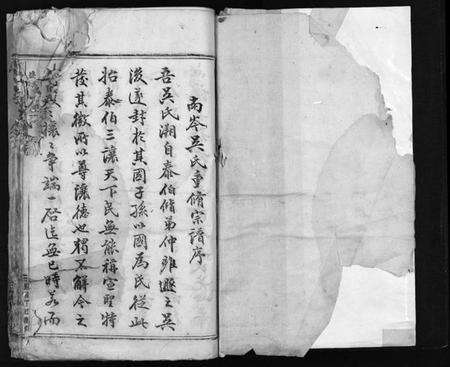 南岑吳氏重脩宗譜序
吾吳氏溯自泰伯偕弟仲雍遜之吳
後遂封於其國子孫以國為氏從此
始泰伯三讓天下民無能稱宣聖特
發其微所以尊讓德也猶不解今之
讓之爭端一啓
無已時若而